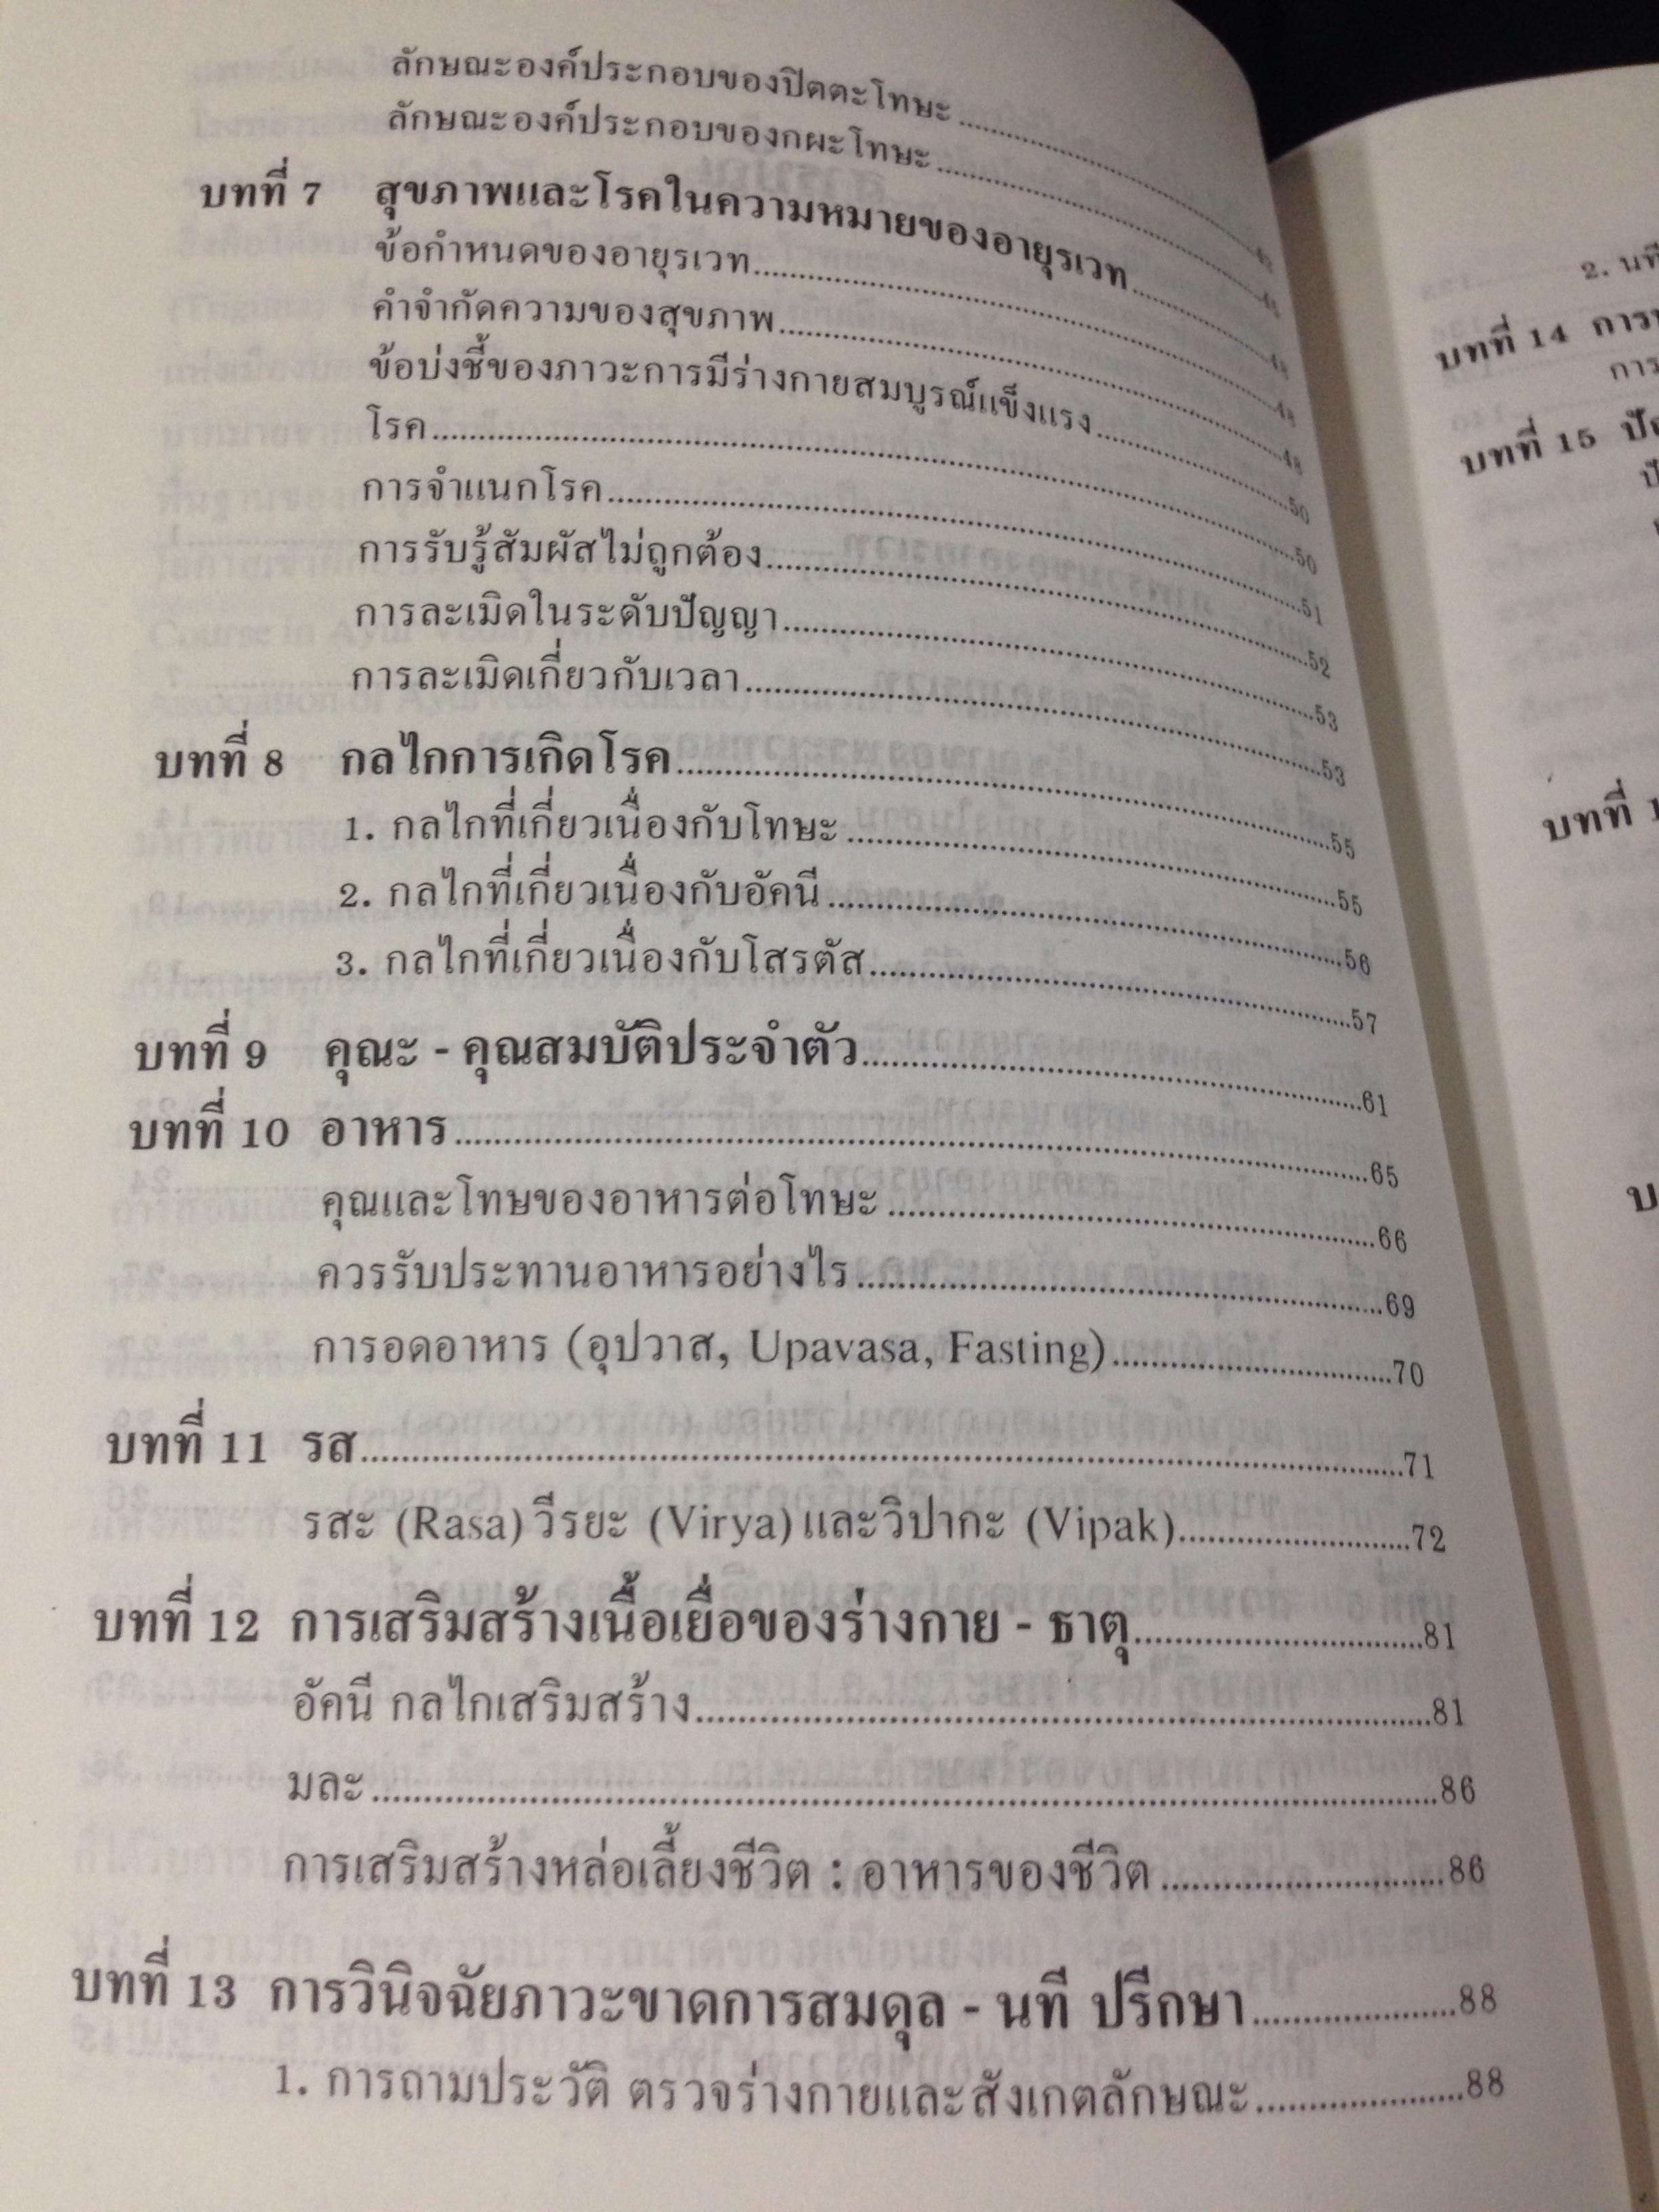 ลักษณะองค์ประกอบของปิตตะโทษะ
ลักษณะองค์ประกอบของกผะโทษะ
บทที่ 7 สุขภาพและโรคในความหมายของอายุรเวท
ข้อกำหนดของอายุรเวท....................48
คำจำกัดความของสุขภาพ....................48
ข้อบ่งชี้ของภาวะการมีร่างกายสมบูรณ์แข็งแรง....................50
โรค....................50
การจำแนกโรค....................51
การรับรู้สัมผัสไม่ถูกต้อง....................52
การละเมิดในระดับปัญญา....................53
การละเมิดเกี่ยวกับเวลา....................53
บทที่ 8 กลไกการเกิดโรค....................55
1. กลไกที่เกี่ยวเนื่องกับโทษะ....................55
2. กลไกที่เกี่ยวเนื่องกับอัคนี....................56
3. กลไกที่เกี่ยวเนื่องกับโสรตัส....................57
บทที่ 9 คุณะ - คุณสมบัติประจำตัว....................61
บทที่ 10 อาหาร....................65
คุณและโทษของอาหารต่อโทษะ....................66
ควรรับประทานอาหารอย่างไร....................69
การอดอาหาร (อุปวาส, Upavasa, Fasting)....................70
บทที่ 11 รส....................71
รสะ (Rasa) วีรยะ (Virya) และวิปากะ (Vipak)....................72
บทที่ 12 การเสริมสร้างเนื้อเยื่อของร่างกาย - ธาตุ....................81
อัคนี กลไกเสริมสร้าง....................81
มละ....................86
การเสริมสร้างหล่อเลี้ยงชีวิต : อาหารของชีวิต....................86
บทที่ 13 การวินิจฉัยภาวะขาดการสมดุล - นที ปรีกษา....................88
1. การถามประวัติ ตรวจร่างกายและสังเกตลักษณะ....................88
2. นที
บทที่ 14 การ
การ
บทที่ 15
บทที่